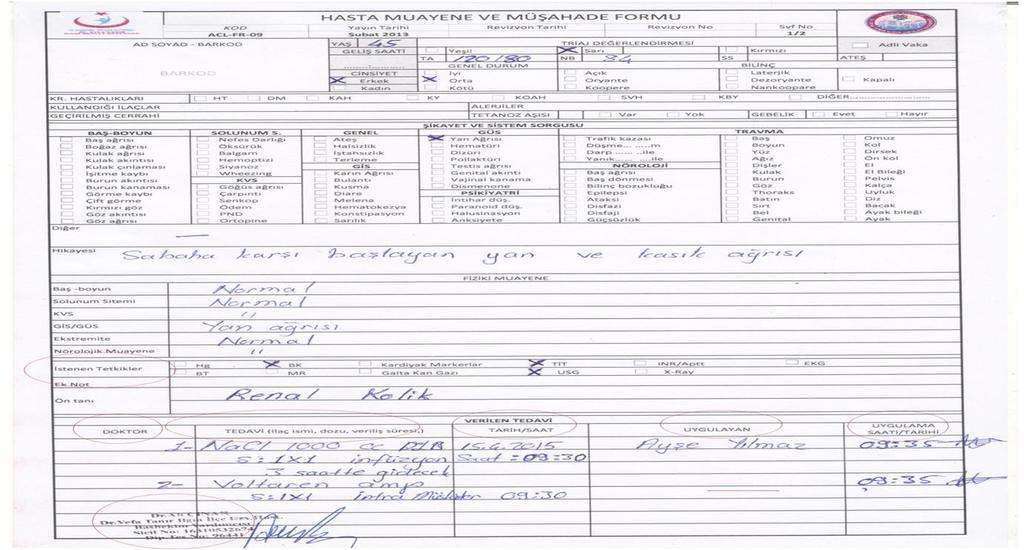 HASTA MUAYENE VE MÜŞAHADE FORMU
KOD Yayın Tarihi Revizyon Tarihi Revizyon No Syf No
ACL-FR-09 Şubat 2013 1/2
AD SOYAD - BARKOD YAŞ 45 TRİAJ DEĞERLENDİRMESİ Adli Vaka
GELİŞ SAATİ Yeşil Sarı Kırmızı
TA 120/80 NB 84 SS ATEŞ
BARKOD GENEL DURUM BİLİNÇ
CİNSİYET İyi Açık Laterjik Kapalı
Erkek Orta Oryante Dezoryante
Kadın Kötü Koopere Nankoopare
KR. HASTALIKLARI HT DM KAH KY KOAH SVH KBY DİĞER
KULLANDIĞI İLAÇLAR ALERJİLER
GEÇİRİLMİŞ CERRAHİ TETANOZ AŞISI Var Yok GEBELİK Evet Hayır
ŞİKAYET VE SİSTEM SORGUSU
BAŞ-BOYUN SOLUNUM S. GENEL GÜS TRAVMA
Baş ağrısı Nefes Darlığı Ateş Yan Ağrısı Trafik kazası Baş Omuz
Boğaz ağrısı Öksürük Halsizlik Hematüri Düşme... ...m Boyun Kol
Kulak ağrısı Balgam İştahsızlık Dizüri Darp ... ..ile Yüz Dirsek
Kulak akıntısı Hemoptizi Terleme Pollaktüri Yanık... ..ile Ağız Ön kol
Kulak çınlaması Siyanoz GİS Testis ağrısı NÖROLOJİ Dişler El
İşitme kaybı Wheezing Karın Ağrısı Genital akıntı Baş ağrısı Kulak El Bileği
Burun akıntısı KVS Bulantı Vajinal kanama Baş dönmesi Burun Pelvis
Burun kanaması Göğüs ağrısı Kusma Dismenone Bilinç bozukluğu Göz Kalça
Görme kaybı Çarpıntı Diare PSİKİYATRİ Epilepsi Thoraks Uyluk
Çift görme Senkop Melena İntihar düş. Ataksi Batın Diz
Kırmızı göz Ödem Hematokezya Paranoid düş. Disfazi Sırt Bacak
Göz akıntısı PND Konstipasyon Halusinasyon Disfaji Bel Ayak bileği
Göz ağrısı Ortopine Sarılık Anksiyete Güçsüzlük Genital Ayak
Diğer
Hikayesi Sabaha karşı başlayan yan ve kasık ağrısı
FİZİKİ MUAYENE
Baş -boyun Normal
Solunum Sitemi Normal
KVS "
GİS/GÜS Yan ağrısı
Ekstremite Normal
Nörolojik Muayene "
İstenen Tetkikler Hg BK Kardiyak Markerlar TİT INR/Aptt EKG
BT MR Gaita Kan Gazı USG X-Ray
Ek Not
Ön tanı Renal Kolik
VERİLEN TEDAVİ
DOKTOR TEDAVİ (ilaç ismi, dozu, veriliş süresi,) TARİH/SAAT UYGULAYAN UYGULAMA SAATİ/TARİHİ
1- NaCl 1000 cc 15.4.2015 Ayşe Yılmaz 09:35
S: 1x1 infüzyon Saat: 09:30
3 saatte gidecek
2- Voltaren amp 09:35
S: 1x1 İntra 09:30